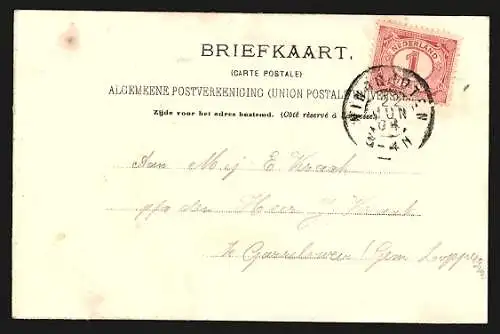 BRIEFKAART.
(CARTE POSTALE)
ALGEMEENE POSTVEREENIGING (UNION POSTALE
Zijde voor het adres bestemd. (Côté réservé à
NEDERLAND
1
22
JUN
04
1-4N
Aan Mej E Kraak
p/a den Heer Kraak
te Garrelsweer (Gem Loppersum)